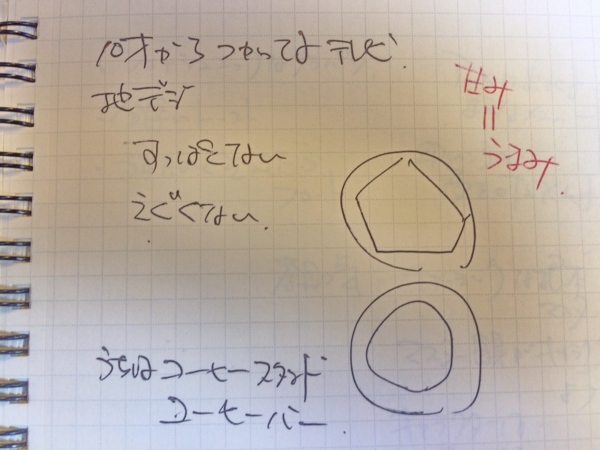 10才からつかってるテレビ.
地デジ
すっぱくてない
えぐくてない.
甘み
=
うまみ.
うちはコーヒースタンド
コーヒーバー.